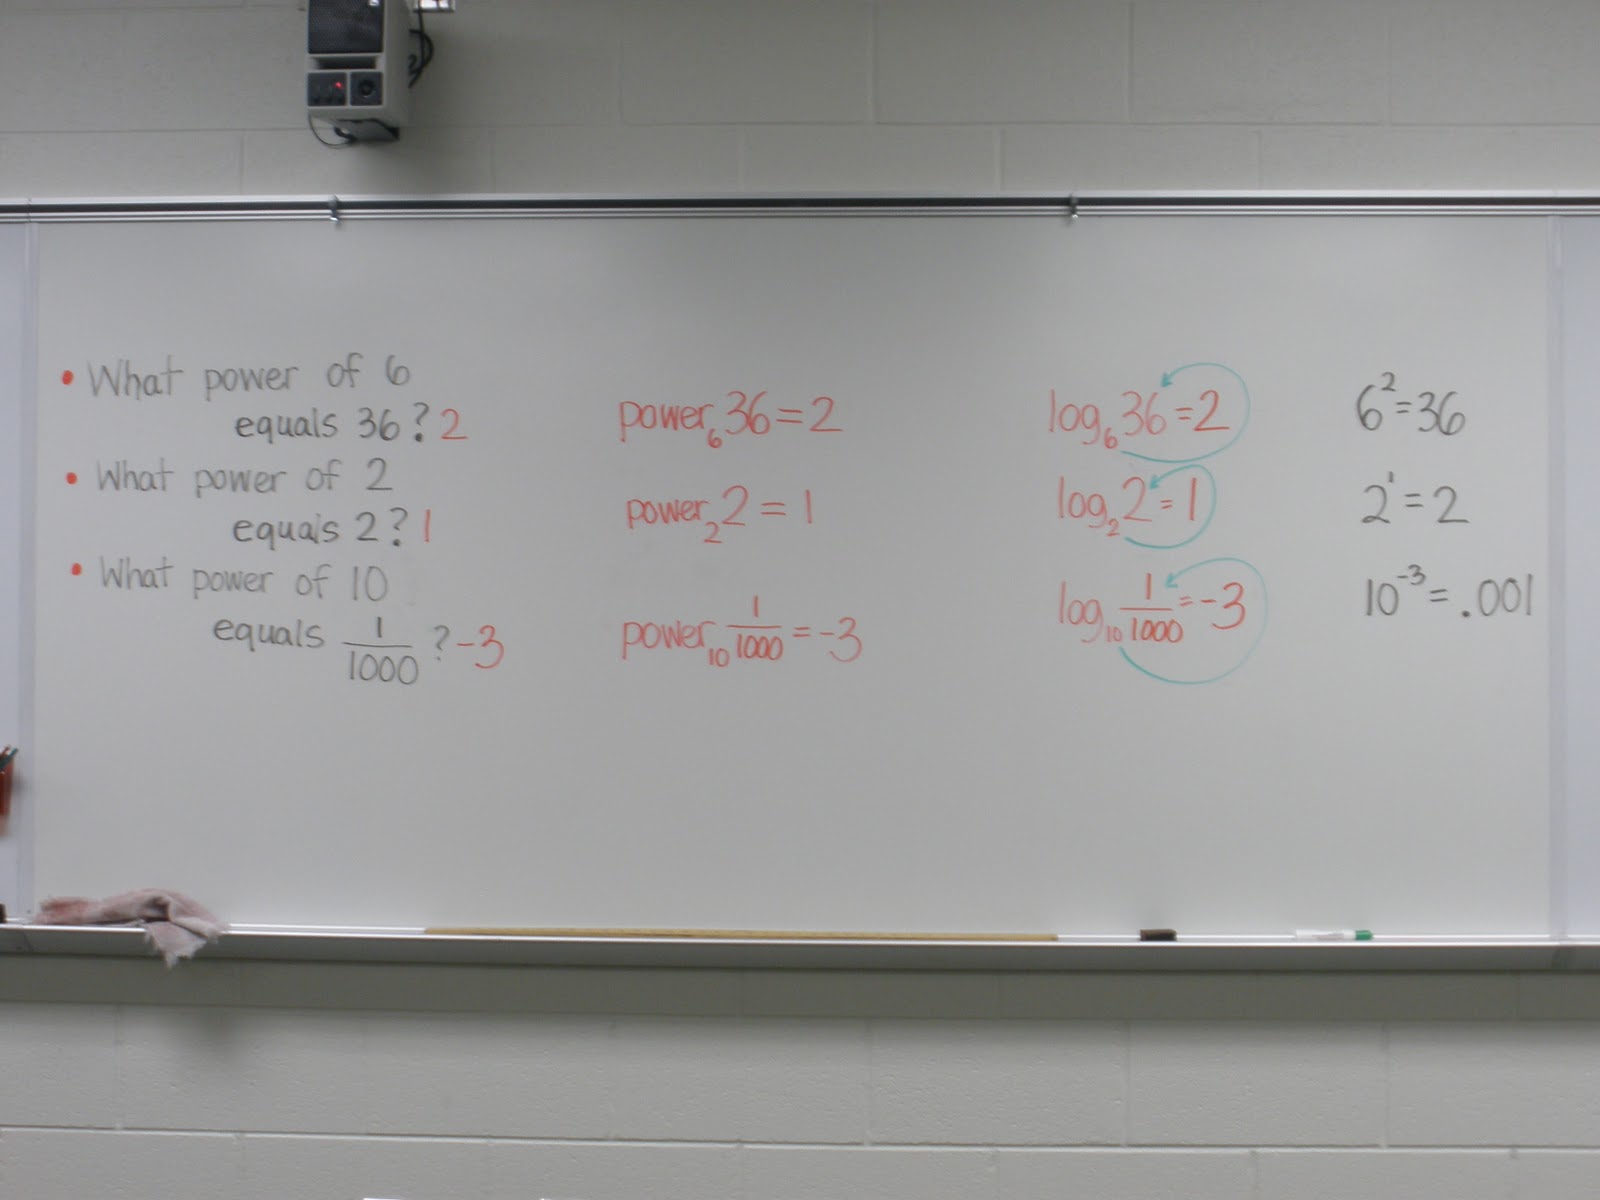 • What power of 6
equals 36? 2
• What power of 2
equals 2? 1
• What power of 10
equals 1/1000 ? -3
power₆36=2
power₂2=1
power₁₀ 1/1000 = -3
log₆36=2
log₂2=1
log₁₀ 1/1000 = -3
6²=36
2¹=2
10⁻³=.001